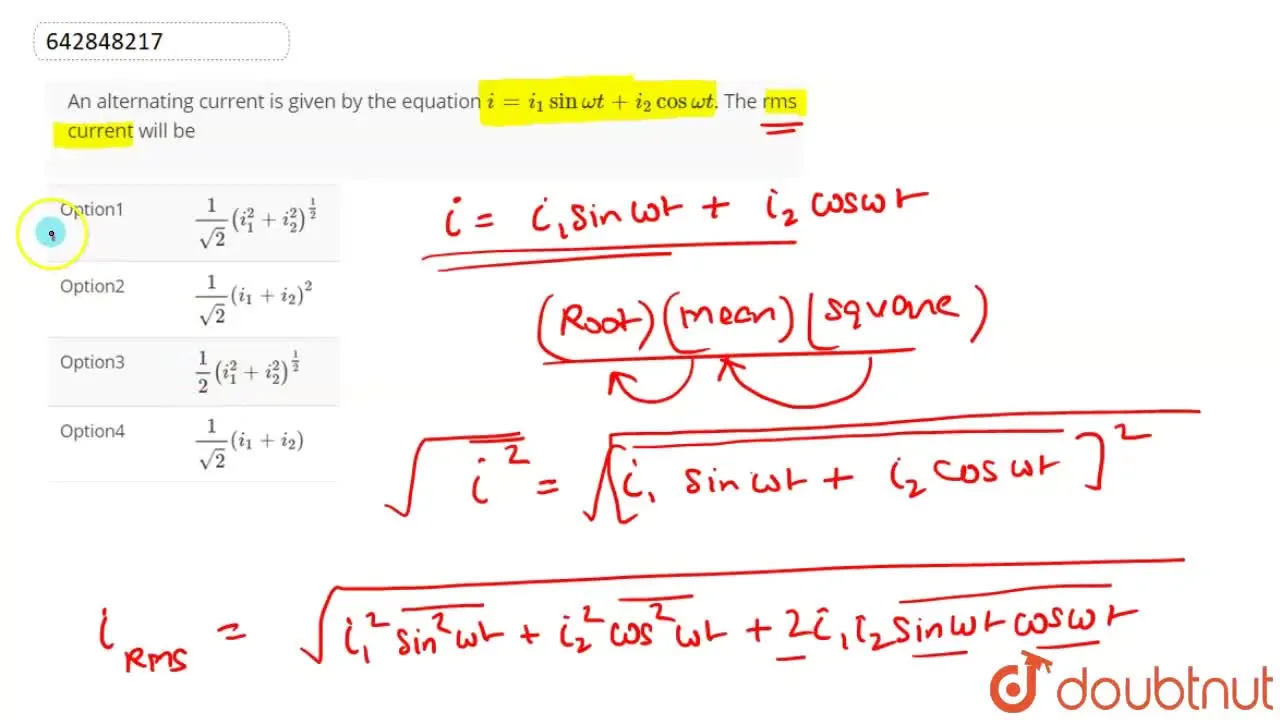 642848217
An alternating current is given by the equation i = i₁ sin ωt + i₂ cos ωt. The rms
current will be
Option1 1/√2 (i₁² + i₂²)^(1/2)
Option2 1/√2 (i₁ + i₂)²
Option3 1/2 (i₁² + i₂²)^(1/2)
Option4 1/√2 (i₁ + i₂)
i = i₁ sin ωt + i₂ cos ωt
(Root) (mean) (square)
√i² = √[i₁ sin ωt + i₂ cos ωt]²
i RMS = √i₁² sin² ωt + i₂² cos² ωt + 2 i₁ i₂ sin ωt cos ωt
doubtnut